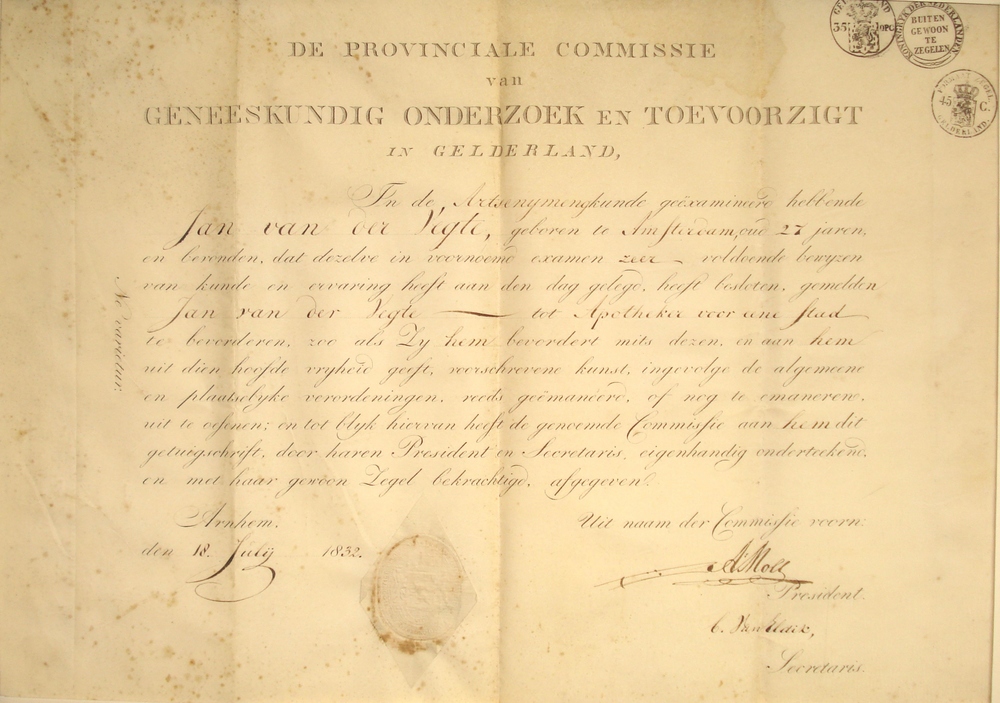 DE PROVINCIALE COMMISSIE
van
GENEESKUNDIG ONDERZOEK EN TOEVOORZIGT
IN GELDERLAND,
In de Artsenymengkunde geëxamineerd hebbende
Jan van der Vegte, geboren te Amsterdam, oud 27 jaren,
en bevonden, dat dezelve in voornoemd examen zeer voldoende bewyzen
van kunde en ervaring heeft aan den dag gelegd, heeft besloten, gemelden
Jan van der Vegte tot Apotheker voor eene Stad
te bevorderen, zoo als Zy hem bevordert mits dezen, en aan hem
uit dien hoofde vryheid geeft, voorschrevene kunst, ingevolge de algemeene
en plaatselyke verordeningen, reeds geëmaneerd, of nog te emaneren,
uit te oefenen; en tot blyk hiervan heeft de genoemde Commissie aan hem dit
getuigschrift, door haren President en Secretaris, eigenhandig onderteekend,
en met haar gewoon Zegel bekrachtigd, afgegeven.
Arnhem,
den 18 July 1832.
Uit naam der Commissie voorn:
President.
C. Van Eldik,
Secretaris.
Ne varietur.
35 OPC
KONINGRYK DER NEDERLANDEN
BUITEN
GEWOON
TE
ZEGELEN
45 C.
GELDERLAND.